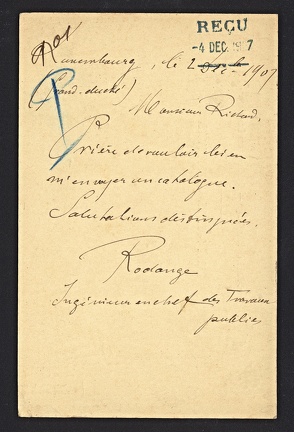 REÇU
-4 DEC. 1907
Luxembourg, le 2 Déc. 1907
(Grand-duché)
Monsieur Richard.
Prière de vouloir bien
m'envoyer un catalogue.
Salutations distinguées.
Rodange
Ingénieur en chef des Travaux
publics